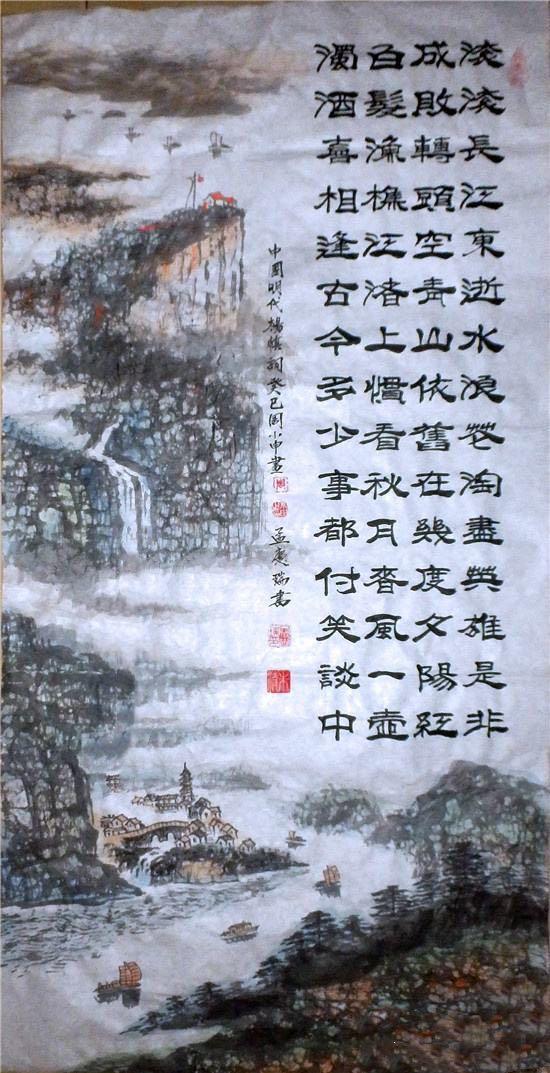 滾滾長江東逝水浪花淘盡英雄是非
成敗轉頭空青山依舊在幾度夕陽紅
白髮漁樵江渚上慣看秋月春風一壺
濁酒喜相逢古今多少事都付笑談中
中國明代楊慎詞癸巳周小申畫
孟慶瑞書